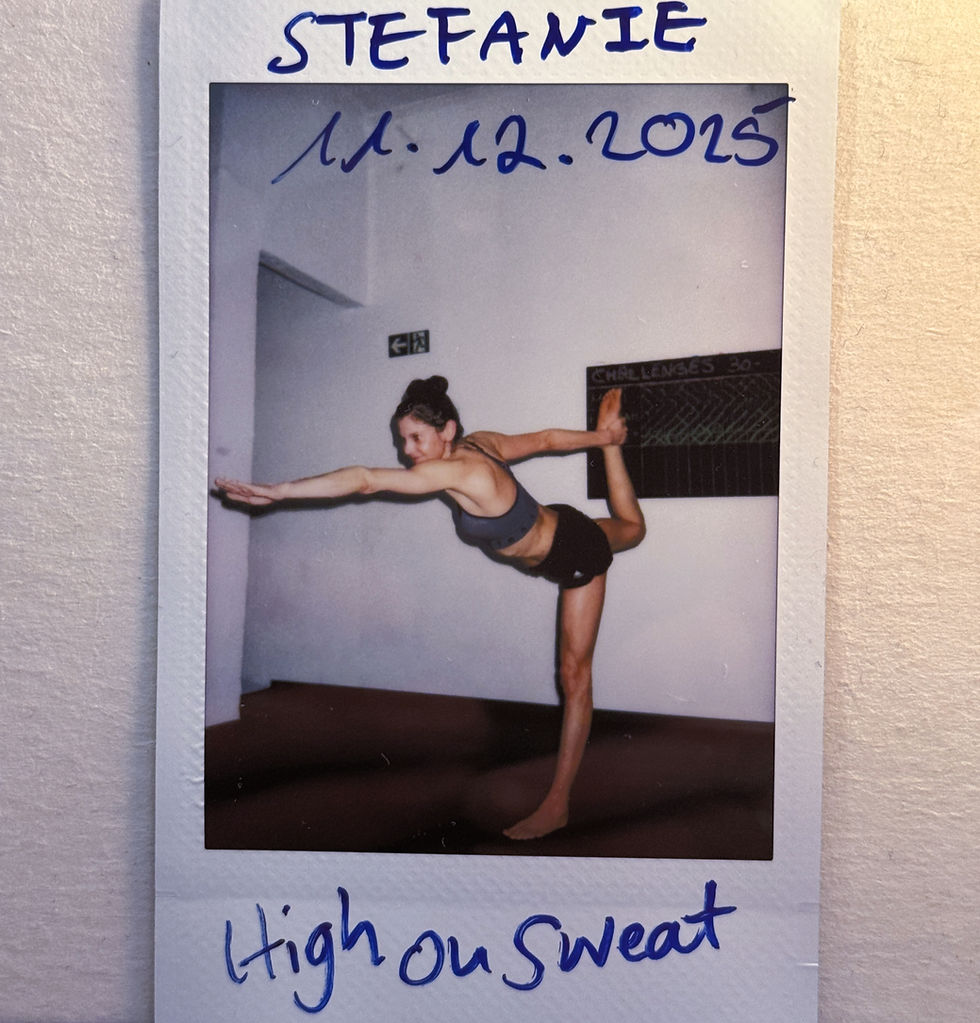 STEFANIE
11.12.2025
CHALLENGES 30-
High on Sweat